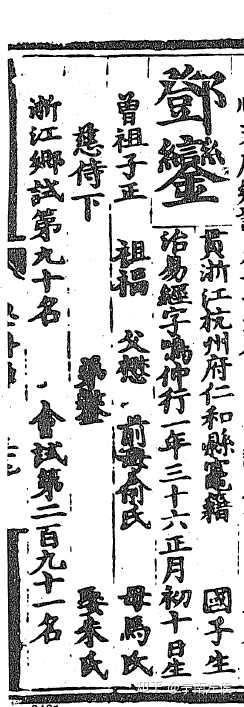 鄧鑾
貫浙江杭州府仁和縣竈籍 國子生
治易經字鳴仲行一年三十六正月初十日生
曾祖子正 祖福 父懋 前母俞氏 母馬氏
慈侍下 娶朱氏
浙江鄉試第九十名 會試第二百九十一名